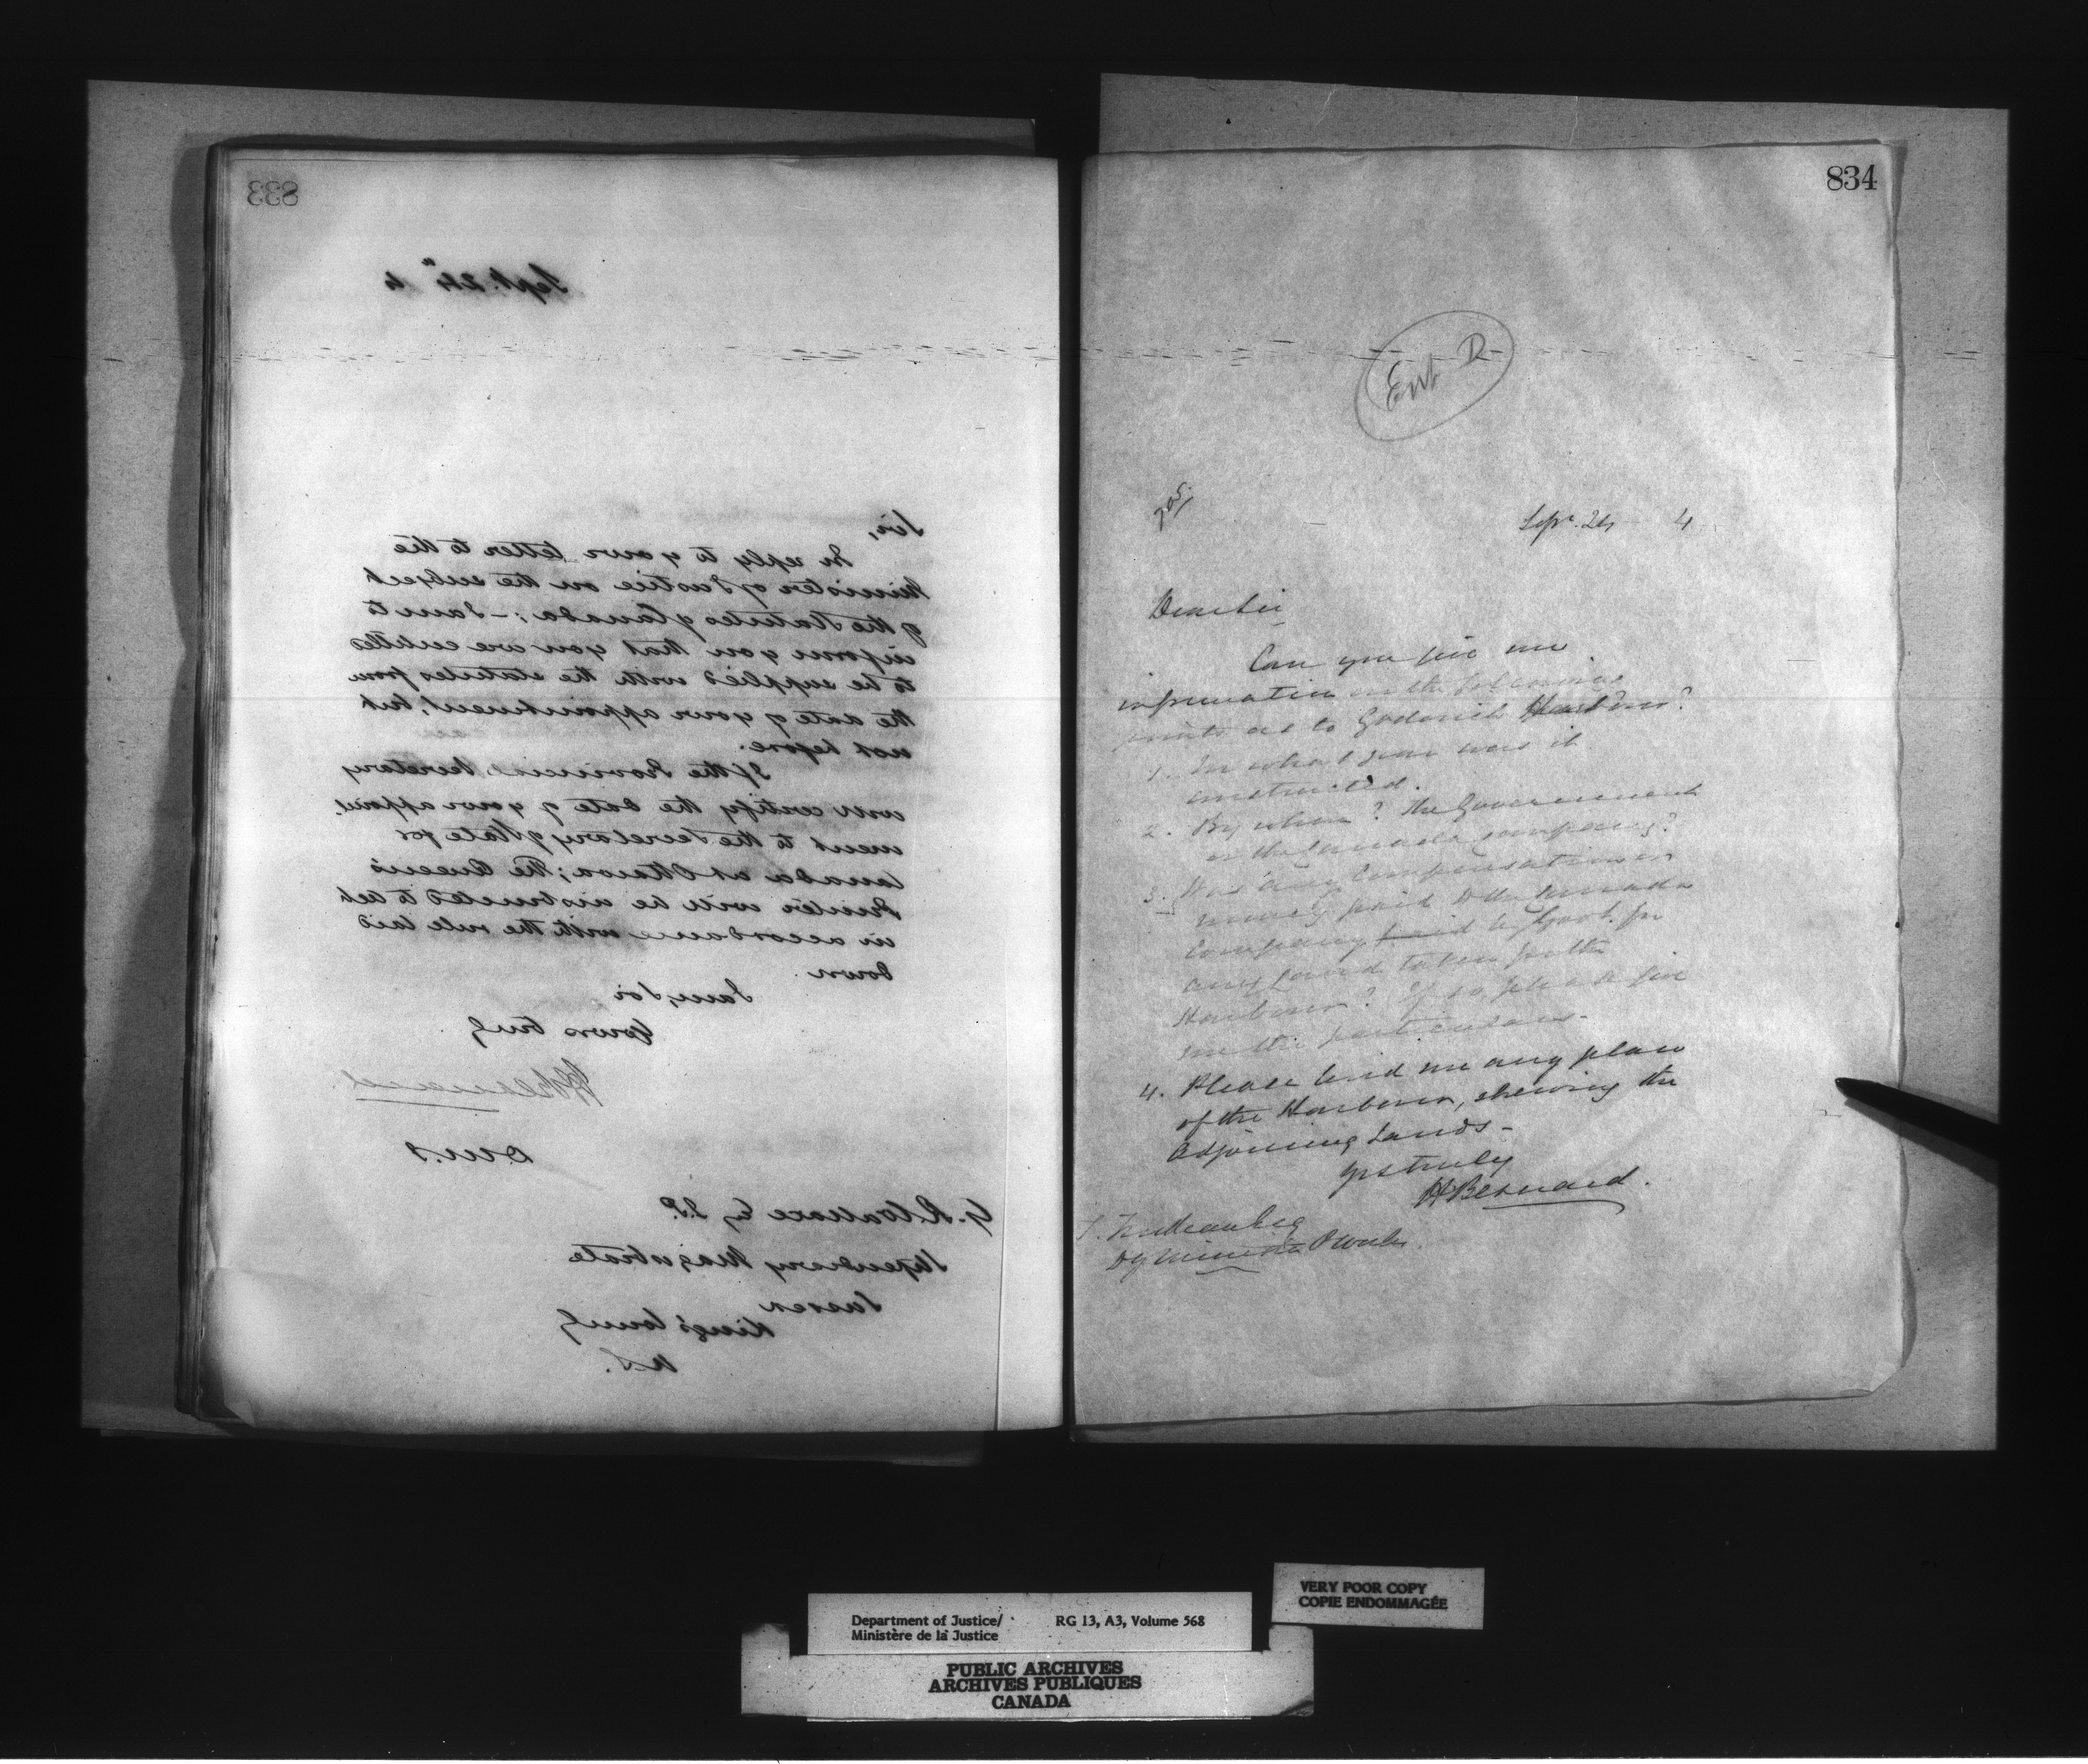 833
Sept. 24" 4
Sir,
In reply to your letter to the
Minister of Justice on the subject
of the Statutes of Canada :- I am to
inform you that you are entitled
to be supplied with the statutes from
the date of your appointment, but
not before.
If the Provincial Secretary
will certify the date of your appoint
ment to the Secretary of State for
Canada at Ottawa; the Queen's
Printer will be instructed to act
in accordance with the rule laid
down.
I am, Sir
Yours truly
H Bernard
D.M.J
G. R. Wallace Esq J.P.
Stipendiary Magistrate
Sussex
King's County
834
Ent D
705
Sept. 24 4
Dear Sir
Can you give me
information on the following
points as to Goderich Harbour?
1. In what year was it
constructed.
2. By whom? The Government
or the Canada Company?
3. Was any Compensation in
money paid to the Canada
Company paid by Govt. for
any land taken for the
Harbour? If so please give
me the particulars.
4. Please send me any plan
of the Harbour, shewing the
adjoining Lands -
Yrs truly
H Bernard.
T. Trudeau Esq
Dy Minister P Works.
Department of Justice/ RG 13, A3, Volume 568
Ministère de la Justice
VERY POOR COPY
COPIE ENDOMMAGÉE
PUBLIC ARCHIVES
ARCHIVES PUBLIQUES
CANADA